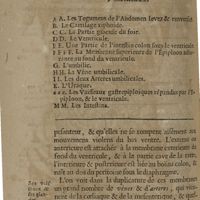 A A. Les Tegumens de l'Abdomen levez & renversez
B. Le Cartilage xiphoide.
C C. La Partie gibeuse du foie.
D D. Le Ventricule.
E E. Une Partie de l'intestin colon sous le ventricule
F F F F. La Membrane superieure de l'Epiploon
au fond du ventricule.
G. L'umbilic.
H H. La Véne umbilicale.
I I. Les deux Arteres umbilicales.
K. L'Uraque.
Les Vaisseaux gastrepiploiques répandus par l'E-
piploon, & le ventricule.
M M. Les Intestins.
pesanteur, & qu'elles ne se rompent aisément aux
mouvemens violens du bas ventre. L'une
anterieure est attachée à la membrane exterieure du
fond du ventricule, & à la partie cave de la rate,
& l'autre posterieure est liée au boyau colon, &
au dos du peritoine sous le diaphragme.
L'on voit dans la duplicature de ces membranes
un grand nombre de vénes & d'arteres, qui
nent de la cœliaque & de la mesenterique,